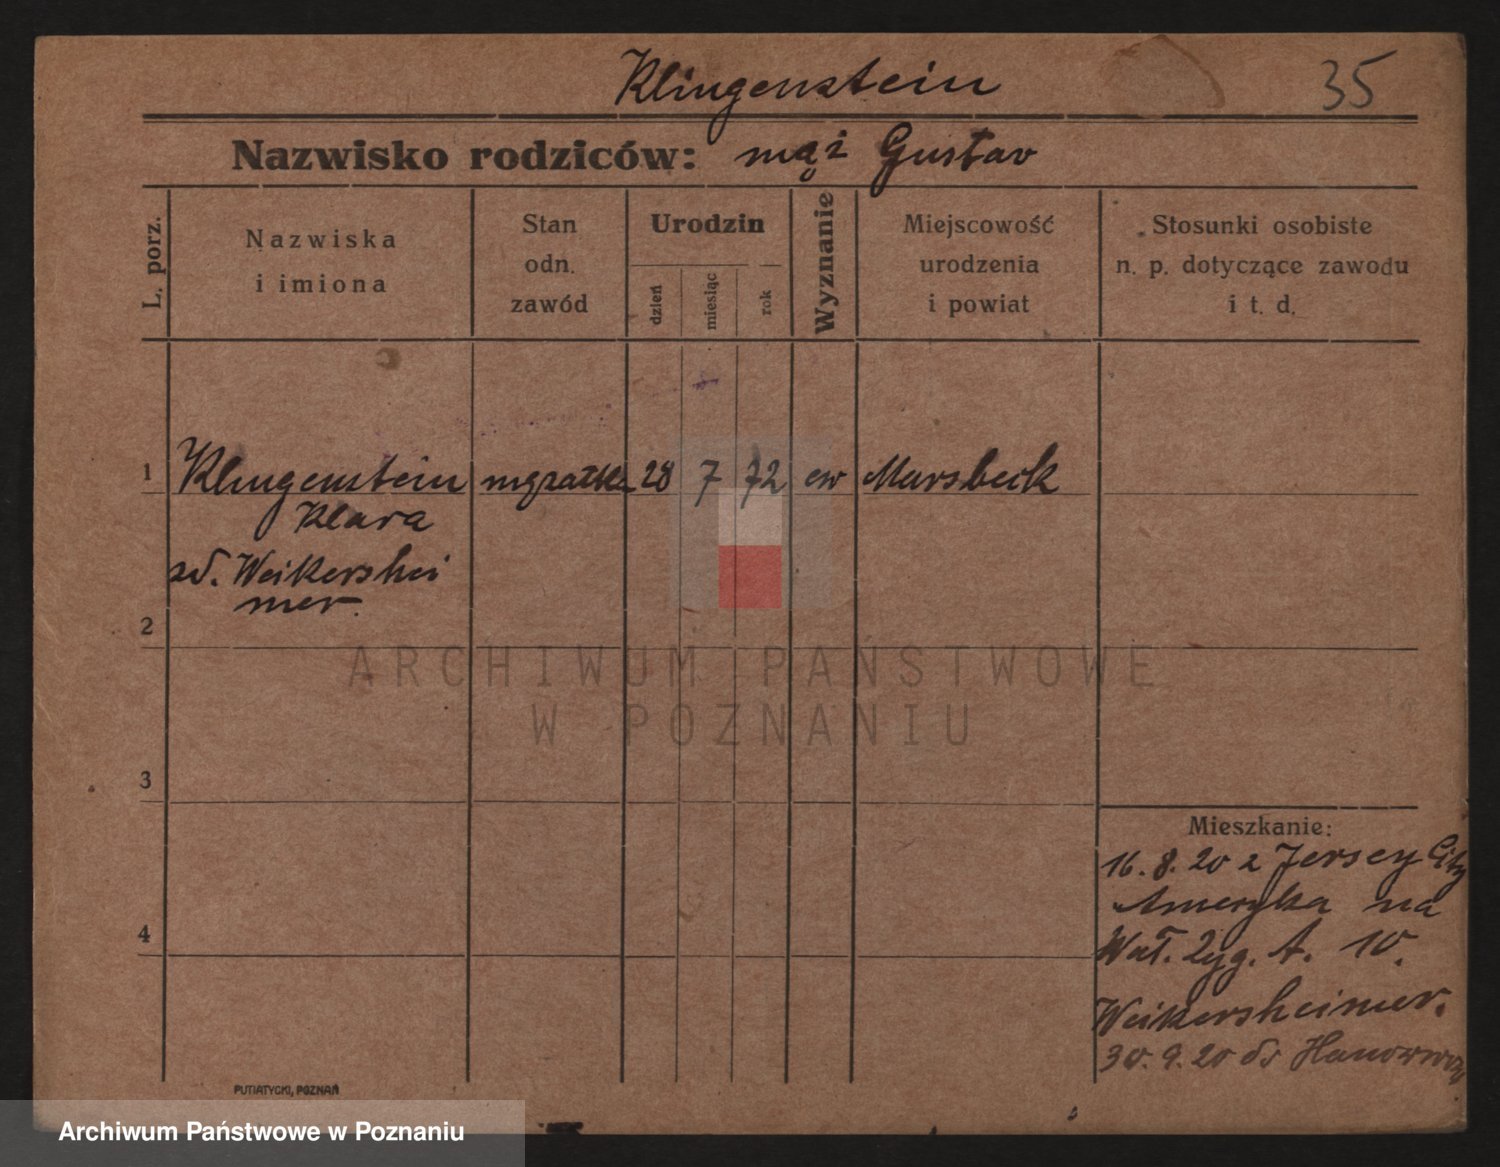 Klingenstein
35
Nazwisko rodziców: mąż Gustav
L. porz.
Nazwiska
i imiona
Stan
odn.
zawód
Urodzin
dzień
miesiąc
rok
Wyznanie
Miejscowość
urodzenia
i powiat
Stosunki osobiste
n. p. dotyczące zawodu
i t. d.
1 Klingenstein 28 7 72 ew Marsbeck
Klara
Weikershei
mer.
2
ARCHIWUM PAŃSTWOWE
W POZNANIU
3
Mieszkanie:
16. 8. 20 z Jersey City
Ameryka na
4
Wał. Zyg. A. 10.
Weikersheimer.
30. 9. 20 do
PUTIATYCKI, POZNAŃ
Archiwum Państwowe w Poznaniu